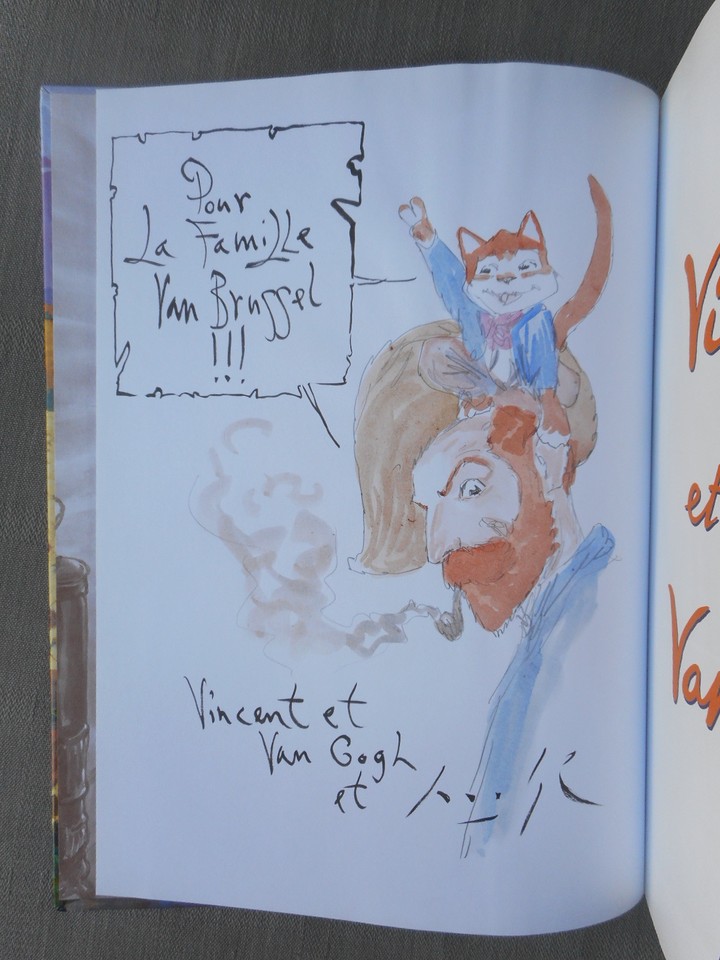 Pour
La FamiLLe
Van Bruggel
!!!
Vincent et
Van Gogh
et
et